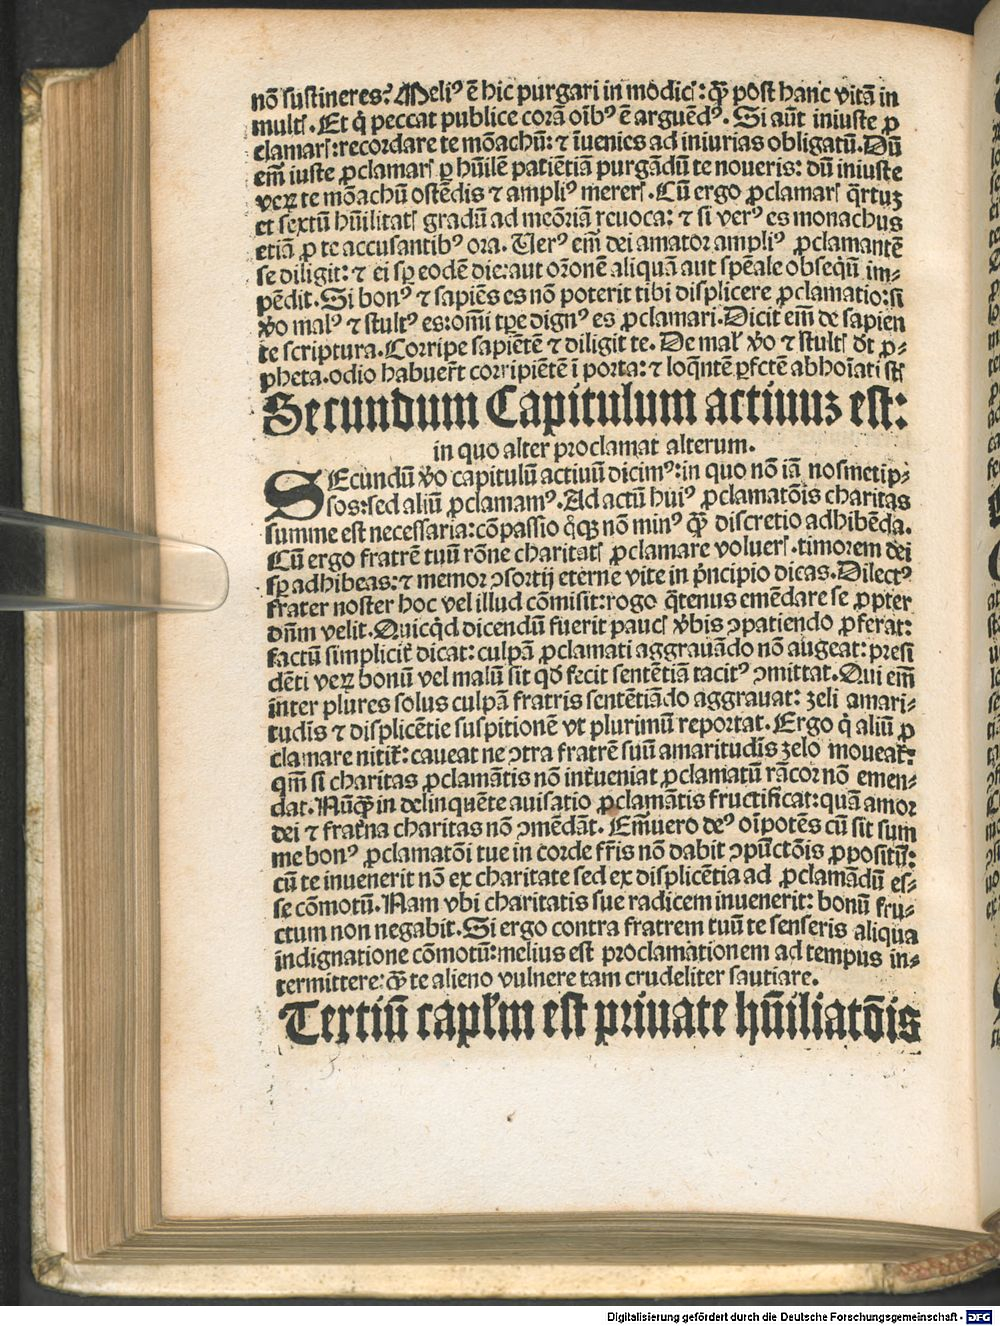 nō sustineres? Meliꝰ ē hic purgari in modicꝭ: q̄ȝ post hanc vitā in
multꝭ. Et q̇ peccat publice corā oībꝰ ē arguēdꝰ. Si aūt iniuste ꝓ
clamarꝭ: recordare te mōachū: ⁊ īuenies ad iniurias obligatū. Dū
em̄ iuste ꝓclamarꝭ ꝑ hūilē patiētiā purgādū te noueris: dū iniuste
veꝝ te mōachū ostēdis ⁊ ampliꝰ mererꝭ. Cū ergo ꝓclamarꝭ q̄rtuȝ
et sextū hūilitatꝭ gradū ad meōriā reuoca: ⁊ si verꝰ es monachus
etiā ꝓ te accusantibꝰ ora. Verꝰ em̄ dei amator ampliꝰ ꝓclamantē
se diligit: ⁊ ei sꝑ eodē die: aut or̄onē aliquā aut spēale obsequī im-
pēdit. Si bonꝰ ⁊ sapiēs es nō poterit tibi displicere ꝓclamatio: si
v̄o malꝰ ⁊ stultꝰ es: omī tꝑe dignꝰ es ꝓclamari. Dicit em̄ de sapien
te scriptura. Corripe sapiētē ⁊ diligit te. De malꝭ v̄o ⁊ stultꝭ dr̄ ꝓ-
pheta. odio habuer̄t corripiētē ī porta: ⁊ loq̄ntē ꝑfctē abhoīati st̄
Secundum Capitulum actiuuȝ est:
in quo alter proclamat alterum.
SEcundū v̄o capitulū actiuū dicimꝰ: in quo nō iā nosmetip-
sos: sed aliū ꝓclamamꝰ. Ad actū huiꝰ ꝓclamatōis charitas
summe est necessaria: cōpassio q̊qȝ nō minꝰ q̄ȝ discretio adhibēda.
Cū ergo fratrē tuū rōne charitatꝭ ꝓclamare voluerꝭ. timorem dei
sꝑ adhibeas: ⁊ memor ↄsortij eterne vite in p̄ncipio dicas. Dilectꝰ
frater noster hoc vel illud cōmisit: rogo q̄tenus emēdare se ꝓpter
dn̄m velit. Quicq̇d dicendū fuerit paucꝭ v̄bis ↄpatiendo ꝓferat:
factū simplicit̄ dicat: culpā ꝓclamati aggrauādo nō augeat: presi
dēti veꝝ bonū vel malū sit qd̄ fecit sentētiā tacitꝰ ↄmittat. Qui em̄
inter plures solus culpā fratris sentētiādo aggrauat: zeli amari-
tudīs ⁊ displicētie suspitionē vt plurimū reportat. Ergo q̇ aliū ꝓ
clamare nitit̄: caueat ne ↄtra fratrē suū amaritudīs zelo moueat̄:
qm̄ si charitas ꝓclamātis nō int̄ueniat ꝓclamatū rācor nō emen-
dat. Nūq̄ȝ in delinquēte auisatio ꝓclamātis fructificat: quā amor
dei ⁊ frat̄na charitas nō ↄmēdāt. Em̄uero deꝰ oīpotēs cū sit sum
me bonꝰ ꝓclamatōi tue in corde fr̄is nō dabit ↄpūctōis ꝓpositū:
cū te inuenerit nō ex charitate sed ex displicētia ad ꝓclamādū es-
se cōmotū. Nam vbi charitatis sue radicem inuenerit: bonū fru-
ctum non negabit. Si ergo contra fratrem tuū te senseris aliqua
indignatione cōmotū: melius est proclamationem ad tempus in-
termittere: q̄ȝ te alieno vulnere tam crudeliter sautiare.
Tertiū capl̄m est priuate hūiliatōis
Digitalisierung gefördert durch die Deutsche Forschungsgemeinschaft - DFG